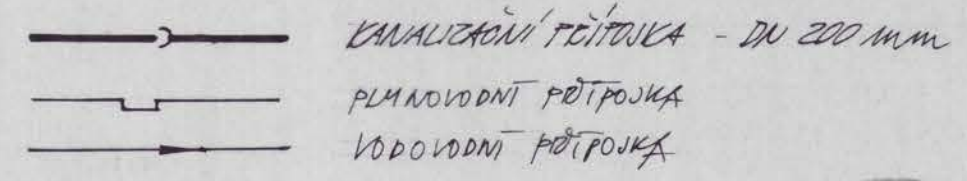 KANALIZAČNÍ PŘÍPOJKA - DN 200 mm
PLYNOVODNÍ PŘÍPOJKA
VODOVODNÍ PŘÍPOJKA